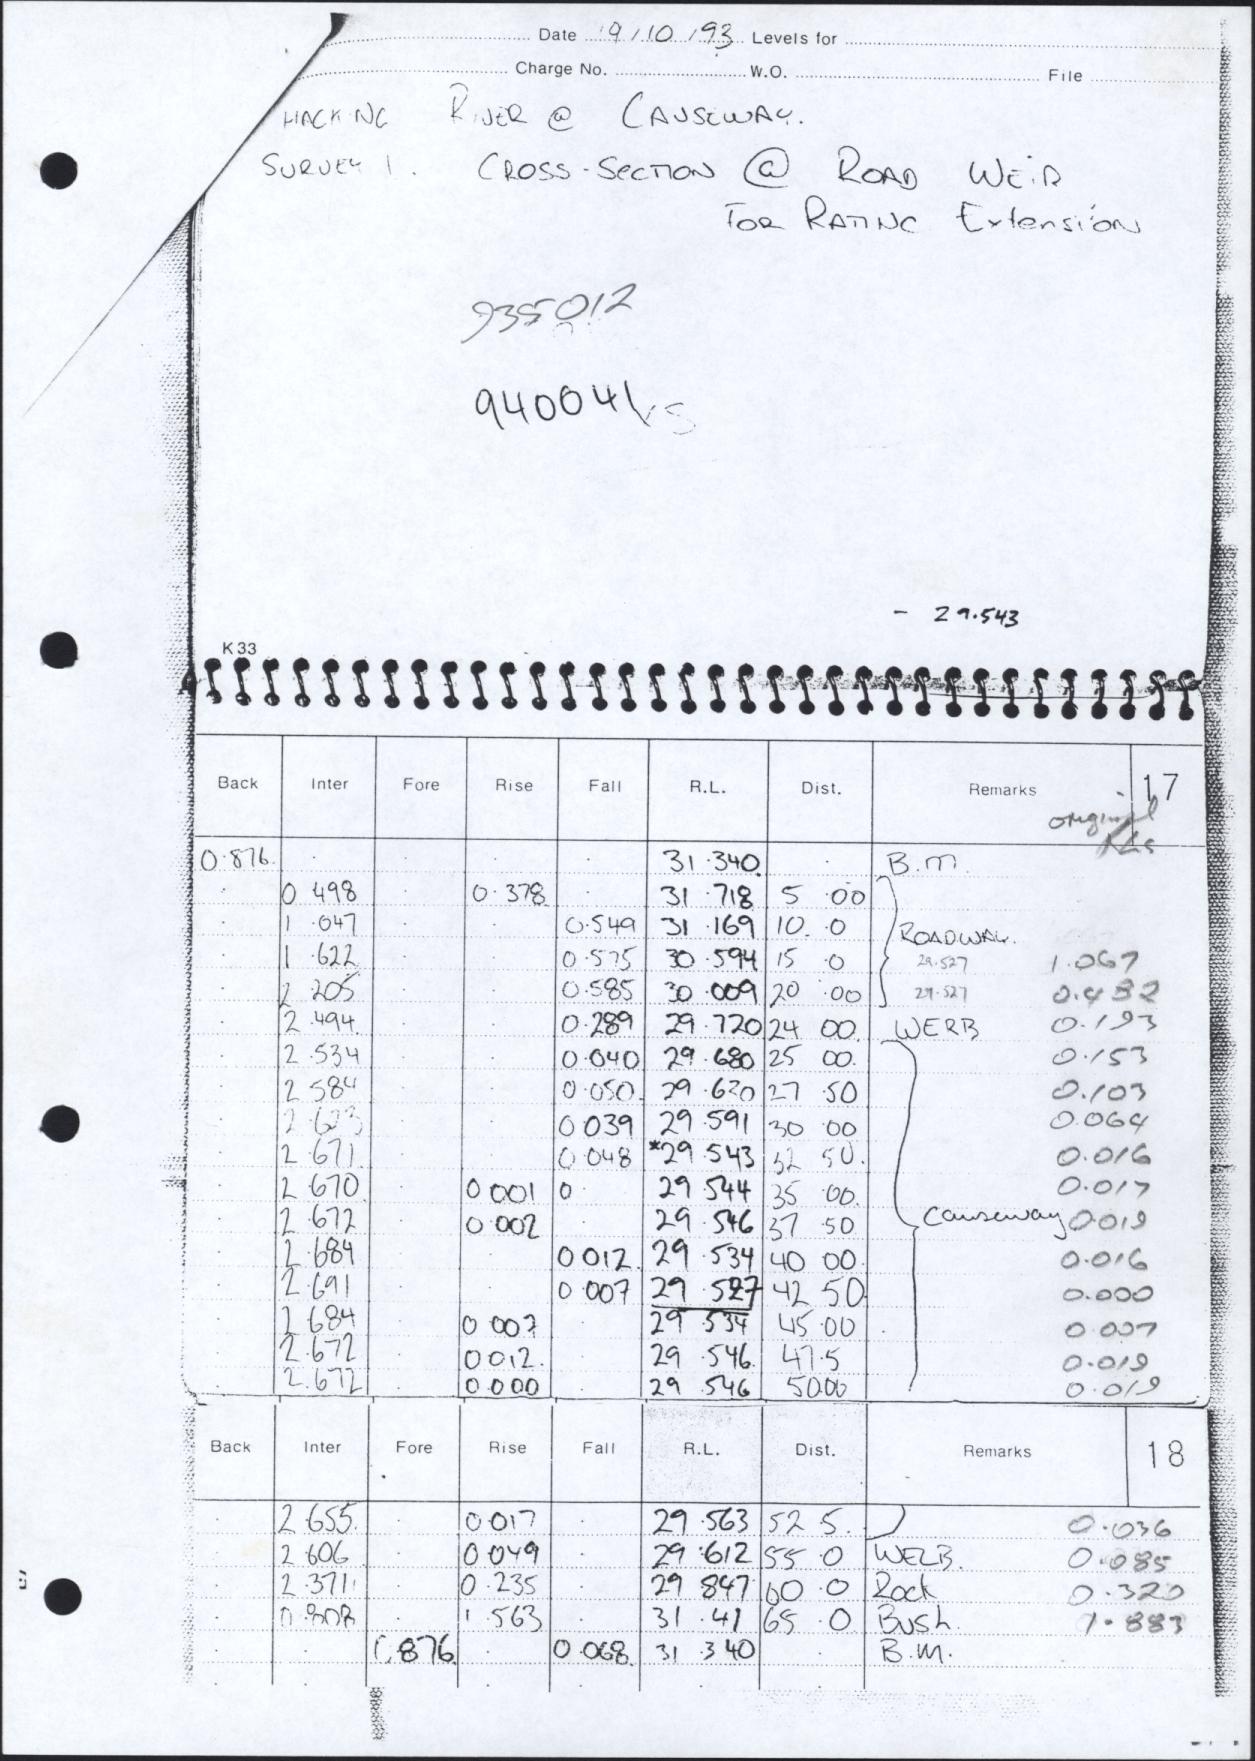 Date 19/10/93 Levels for
Charge No. W.O. File
HACKING RIVER @ CAUSEWAY.
SURVEY 1. CROSS-SECTION @ ROAD WEIR
FOR RATING Extension
935012
940041
- 29.543
K33
Back Inter Fore Rise Fall R.L. Dist. Remarks 17
original
RLs
0.876 31.340 B.M.
0.498 0.378 31.718 5.00
1.047 0.549 31.169 10.0 ROADWAY.
1.622 0.575 30.594 15.0 29.527 1.067
2.205 0.585 30.009 20.00 29.527 0.482
2.494 0.289 29.720 24 00 WERB 0.193
2.534 0.040 29.680 25 00 0.153
2.584 0.050 29.630 27.50 0.103
2.623 0.039 29.591 30.00 0.064
2.671 0.048 *29.543 32 50 0.016
2.670 0.001 0 29.544 35.00 0.017
2.672 0.002 29.546 37 50 Causeway 0.019
2.684 0.012 29.534 40 00 0.016
2.691 0.007 29.527 42 50 0.000
2.684 0.007 29.534 45.00 0.007
2.672 0.012 29.546 47.5 0.019
2.672 0.000 29.546 50.00 0.019
Back Inter Fore Rise Fall R.L. Dist. Remarks 18
2.655 0.017 29.563 52.5 0.036
2.606 0.049 29.612 55.0 WELB. 0.085
2.371 0.235 29.847 60.0 Rock 0.320
0.808 1.563 31.41 65.0 Bush 1.883
0.876 0.068 31.340 B.M.